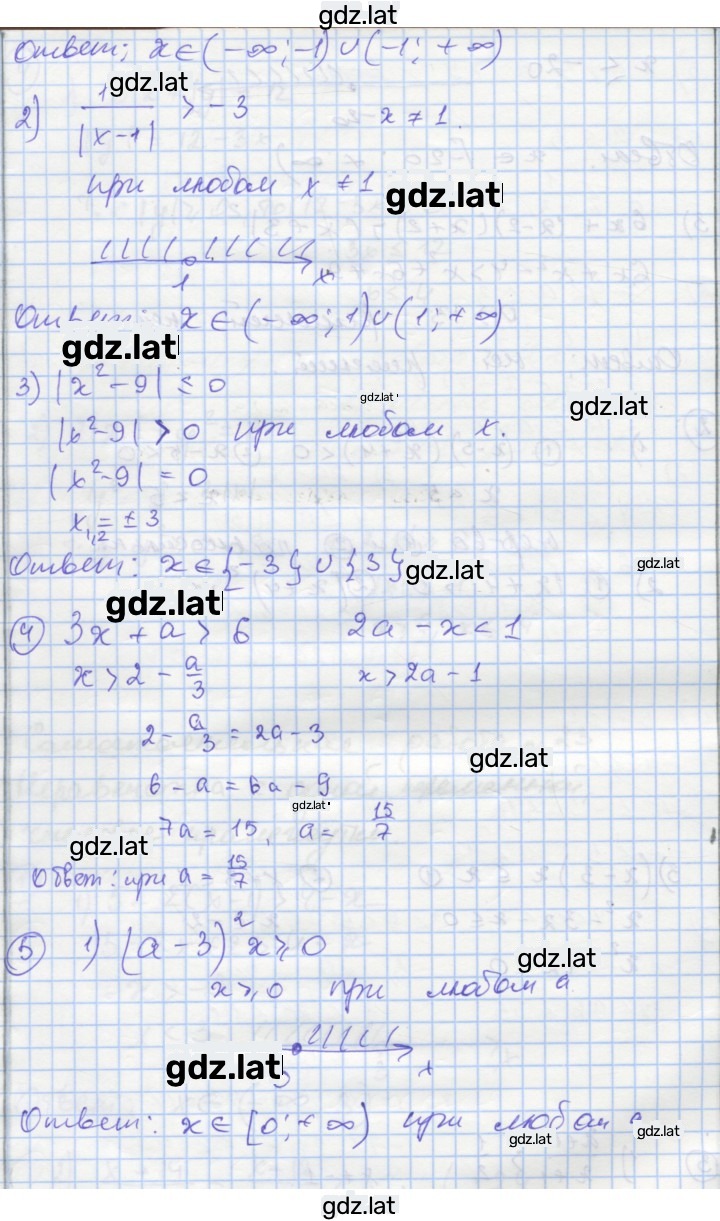 gdz.lat
Ответ: x ∈ (-∞; -1) ∪ (-1; +∞)
gdz.lat
2) 1/|x-1| > -3    x ≠ 1.
при любом x ≠ 1
gdz.lat
1 x
Ответ: x ∈ (-∞; 1) ∪ (1; +∞)
gdz.lat
3) |x²-9| ≤ 0
gdz.lat
gdz.lat
|x²-9| > 0 при любом x.
|x²-9| = 0
x₁,₂ = ±3
Ответ: x ∈ {-3} ∪ {3}
gdz.lat
gdz.lat
gdz.lat
4 3x + a > 6    2a - x < 1
x > 2 - a/3    x > 2a - 1
2 - a/3 = 2a - 3
gdz.lat
6 - a = 6a - 9
gdz.lat
7a = 15, a = 15/7
gdz.lat
Ответ: при a = 15/7
5 1) (a-3)²x ≥ 0
gdz.lat
x ≥ 0 при любом a
gdz.lat
x
Ответ: x ∈ [0; +∞) при любом
gdz.lat
gdz.lat
gdz.lat